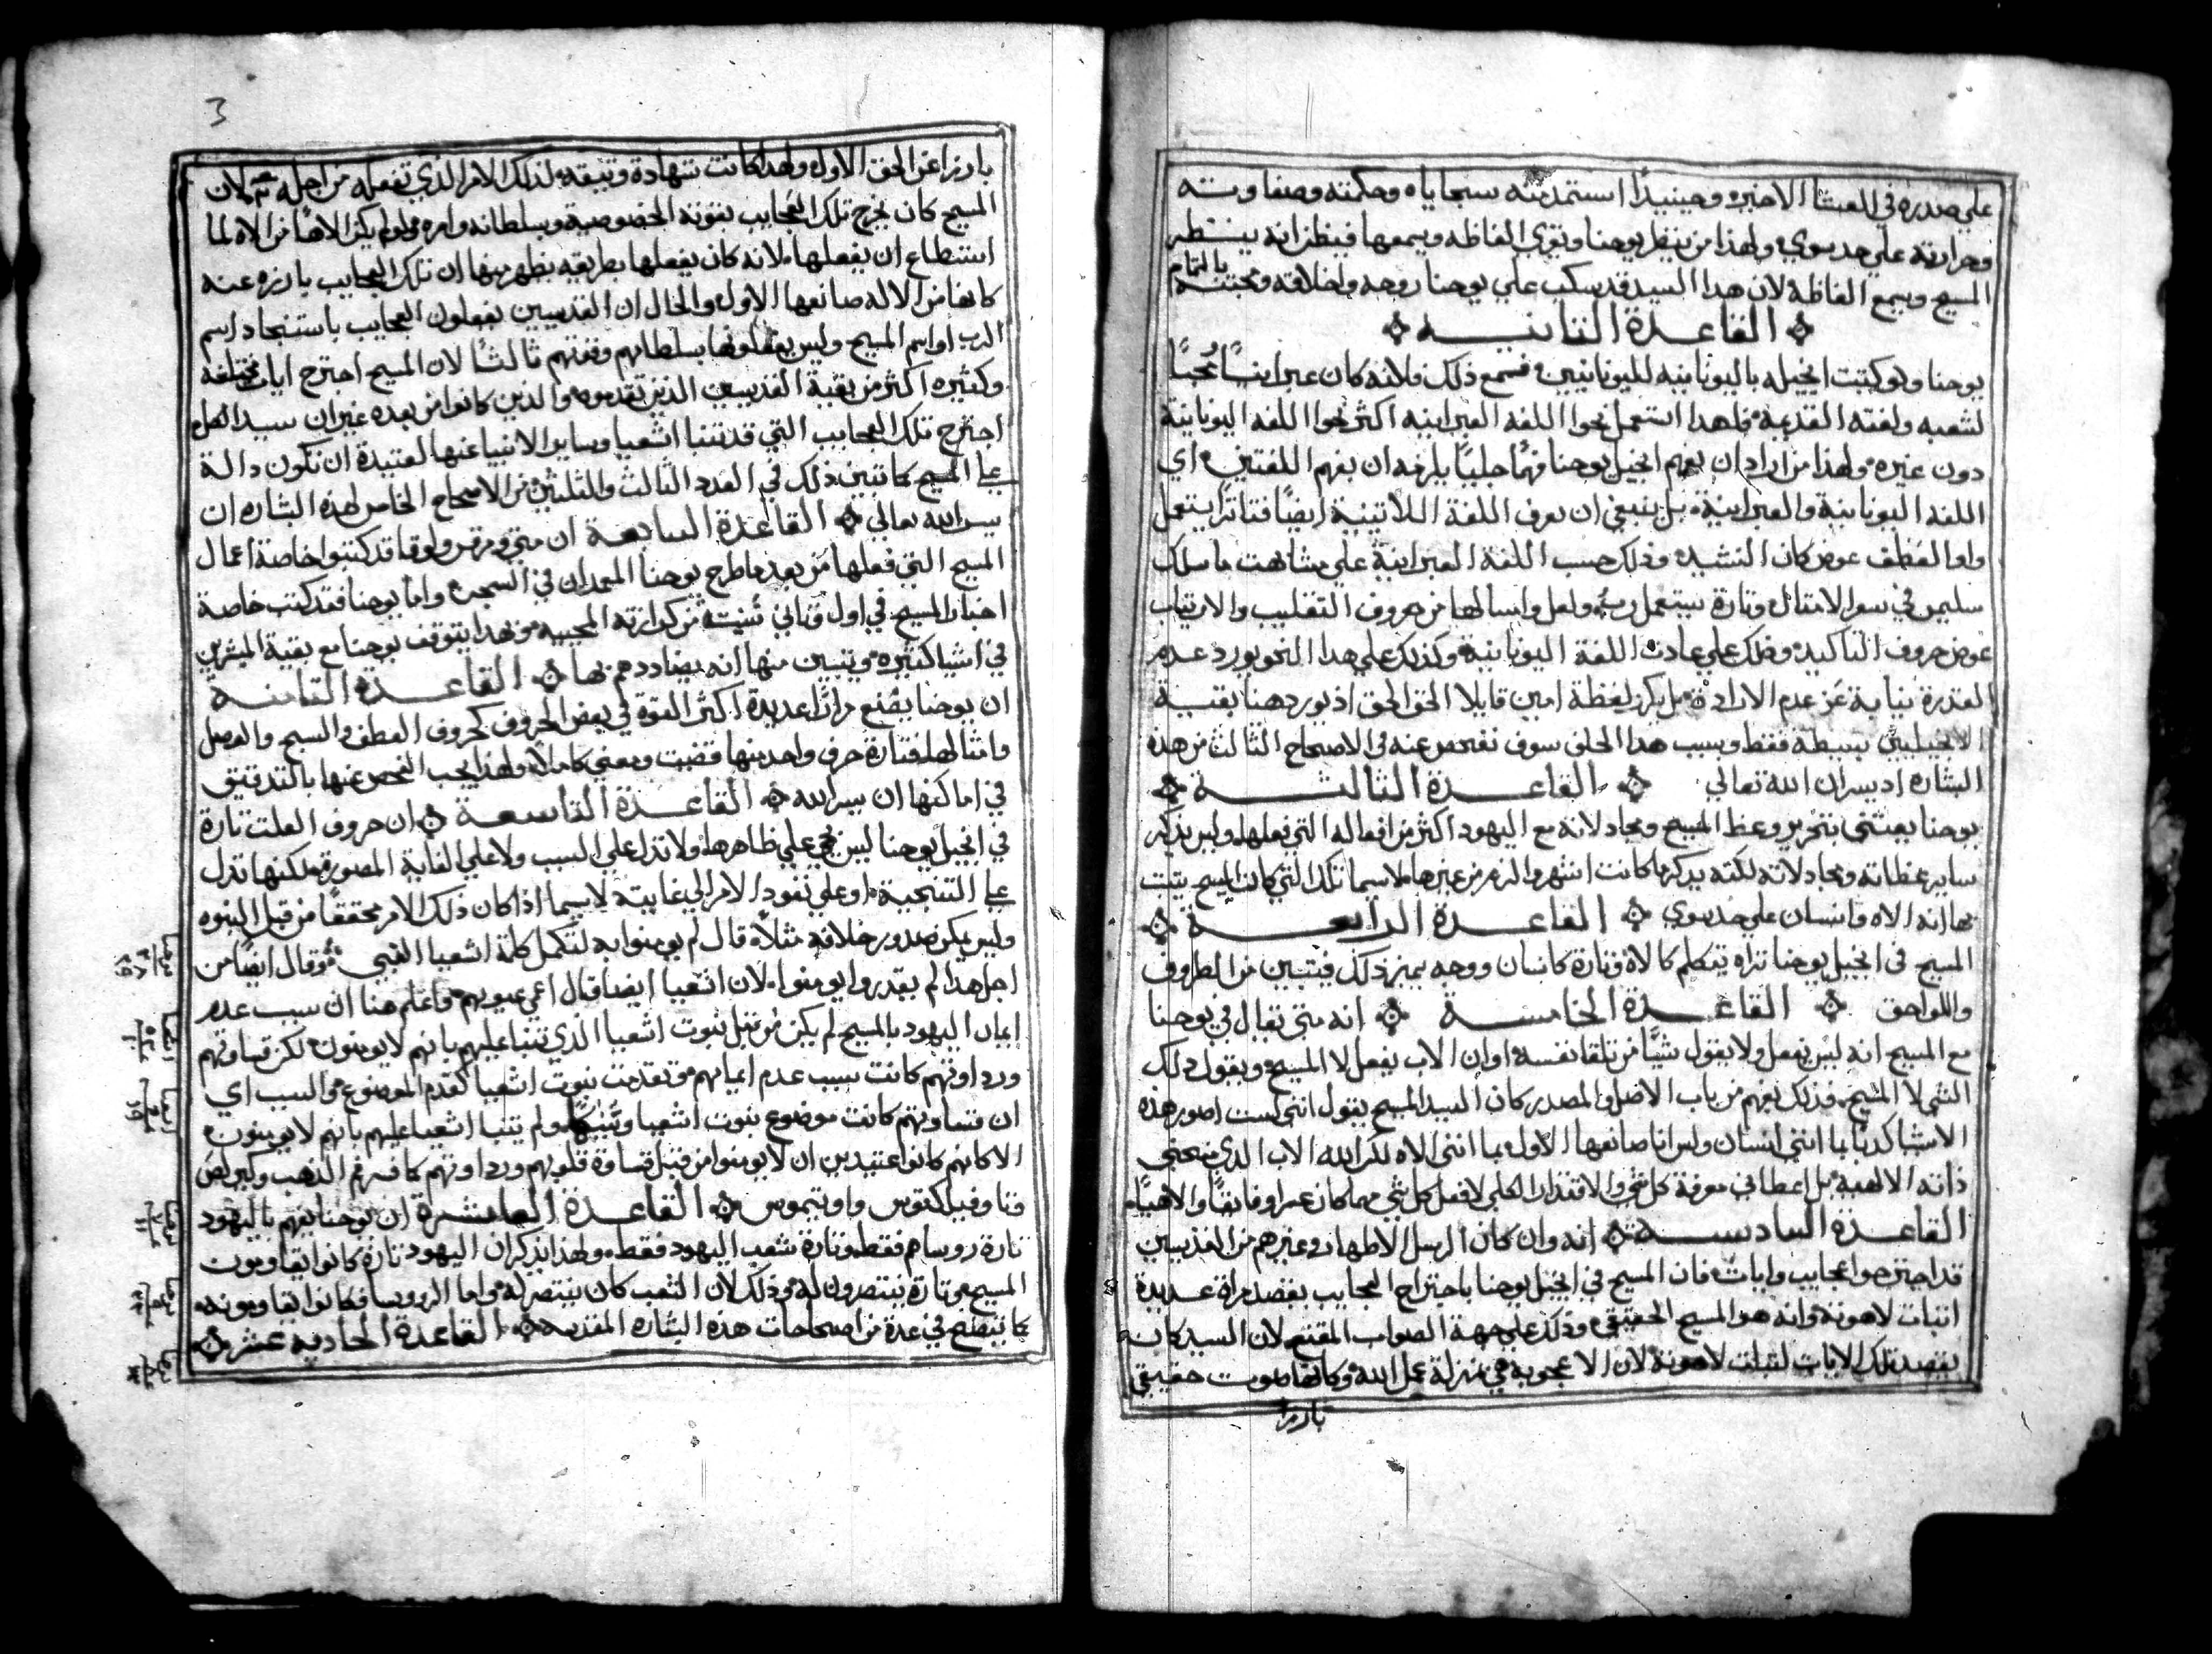 علي صدره في العشا الاخير وحينيدًا استمد منه سجاياه وحكمته وصفاوته
وحرارته علي حد سوي ولهذا من ينظر يوحنا ويقري الفاظه ويسمعها فيظن انه ينظر
المسيح ويسمع الفاظه لان هدا السيد قد سكب علي يوحنا روحه واخلاقه ومحبته بالتمام
القاعدة الثانيه
يوحنا ولو كتبت انجيله باليونانيه لليونانيين فمع ذلك فلانه كان عبرانيًا محبًا
لشعبه ولغته القديمه فلهدا استعمل نحوا اللغه العبرانيه اكثر نحوا اللغه اليونانية
دون غيره ولهذا من اراد ان يفهم انجيل يوحنا فهمًا جليًا يلزمه ان يفهم اللغتين اي
اللغه اليونانية والعبرانية بل ينبغي ان يعرف اللغة اللاتينية ايضًا فتاتًرا يستعمل
واو العطف عوض كان التشبيه وذلك حسب اللغة العبرانية علي مشابهت ما سلك
سليمن في سفر الامثال وتارة يستعمل ولعل وامثالها من حروف التقليب والارتياب
عوض حروف التاكيد وذلك علي عادت اللغة اليونانية وكذلك علي هدا النحو يورد عدم
القدرة نيابة عن عدم الارادة بل يكرز لفظة امين قايلا الحق الحق اذ يوردها بقية
الانجيليين بسيطه فقط وبسبب هدا الحلف سوف نفحص عنه في الاصحاح الثالث من هده
البشاره اديسر ان الله تعالي القاعدة الثالثة
يوحنا يعتني بتحرير وعظ المسيح ومجادلانه مع اليهود اكثر من افعاله التي فعلها وليس يذكر
ساير عظاته ومجادلاته لكنه يدكر ما كانت اشهر والزم من غيرها لاسيما تلك التي كان المسيح يثبت
بها انه الاه وانسان علي حد سوي القاعدة الرابعة
المسيح في انجيل يوحنا تراه يتكلم كالاه وتارة كانسان ووجه يميز ذلك فيتبين من الظروف
واللواحق القاعدة الخامسة انه متي يقال في يوحنا
مع المسيح انه ليس يفعل ولا يقول شيًا من تلقا نفسه او ان الاب يفعل لا المسيح ويقول ذلك
الشي لا المسيح فذلك يفهم من باب الاصل والمصدر كان السيد المسيح يقول انني لست اصور هذه
الاشيا كدبًا بما انني انسان وليس انا صانعها الاول بما انني الاه لكن الله الاب الذي منحني
ذاته الالهية بل اعطاني معرفة كل شي والاقتدار الكلي لافعل كل شي مهما كان عسرا وفايقًا والاهيًا
القاعدة السادسة انه وان كان الرسل الاطهار وغيرهم من القديسين
قد اجترحوا عجايب وايات فان المسيح في انجيل يوحنا باجتراح العجايب يقصد مرارة عديدة
اتبات لاهوته وانه هو المسيح الحقيقي وذلك علي جهة الصواب المقنع لان السيد كان
يقصد تلك الايات لتبات لاهوته لان الاعجوبة هي بمنزلة عمل الله وكانها صوت حقيقي
بارزا
3
بارزا عن الحق الاول ولهدا كانت شهادة وثيقه لذلك الامر الذي تفعله من اجله لان
المسيح كان يخرج تلك العجايب بقوته الخصوصية وبسلطانه وامره ولو لم يكن الاهًا من الاه لما
استطاع ان يفعلها لانه كان يفعلها بطريقه يظهر منها ان تلك العجايب بارزه عنه
كانها من الاله صانعها الاول والحال ان القديسين يفعلون العجايب باستنجاد اسم
الرب او اسم المسيح وليس يفعلونها بسلطانهم وقوتهم ثالثًا لان المسيح اجترح ايات مختلفه
وكثيره اكثر من بقية القديسين الدين تقدموه والذين كانوا من بعده غير ان سيد الكل
اجترح تلك العجايب التي قد تنبا اشعيا وساير الانبيا عنها لعتيدة ان تكون دالة
علي المسيح كما تبين ذلك في العدد الثالث والثلثين من الاصحاح الخامس لهذه البشاره ان
يسر الله تعالي القاعدة السابعة ان متي ومرقس ولوقا قد كتبوا خاصة اعمال
المسيح التي فعلها من بعد ما طرح يوحنا المعمدان في السجن واما يوحنا فقد كتب خاصة
اخبار المسيح في اول وثاني سنيت من كرازته المجيبه وبهدا يتوقف يوحنا مع بقية المبشرين
في اشيا كثيره ويتبين منها انه يضاددهم بها القاعدة الثامنة
ان يوحنا يضع مرارًا عديدة اكثر القوة في بعض الحروف كحروف العطف والسبح والفصل
وامثالها فتارة حرف واحد منها قضيت ومعني كاملًا ولهذا يجب الفحص عنها بالتدقيق
في اماكنها ان يسر الله القاعدة التاسعة ان حروف العلت تارة
في انجيل يوحنا ليس هي علي ظاهرها ولا تدل علي السبب ولا علي الغاية المصورة لكنها تدل
علي النتيجة او علي نفود الامر الي غايته لاسيما اذا كان ذلك الامر محققًا من قبل النبوه
وليس يمكن صدور خلافه مثلًا قال لم يومنوا به لتكمل كلمة اشعيا النبي وقال ايضًا من
اجل هدا لم يقدروا يومنوا لان اشعيا ايضا قال اعمي عيونهم فاعلم هنا ان سبب عدم
ايمان اليهود بالمسيح لم يكن من قبل نبوت اشعيا الذي تنبا عليهم بانهم لا يومنون لكن قساوتهم
ورداوتهم كانت سبب عدم ايمانهم وتقدمت نبوت اشعيا كقدم الموضوع والسبب اي
ان قساوتهم كانت موضوع نبوت اشعيا ولم يتنبا اشعيا عليهم بانهم لا يومنون
الا كانهم كانوا عتيدين ان لا يومنوا من قبل قساوة قلوبهم ورداوتهم كما فسر فم الذهب وكيرلص
وثاوفيلكتوس واوتيموس القاعدة العاشرة ان يوحنا يفهم باليهود
تارة روساهم فقط وتارة شعب اليهود فقط ولهذا يذكر ان اليهود تارة كانوا يقاومون
المسيح وتارة ينتصرون له وذلك لان الشعب كان ينتصر له واما الروسا فكانوا يقاومونه
كما يتضح في عدة من اصحاحات هذه البشاره المقدسه القاعدة الحاديه عشر